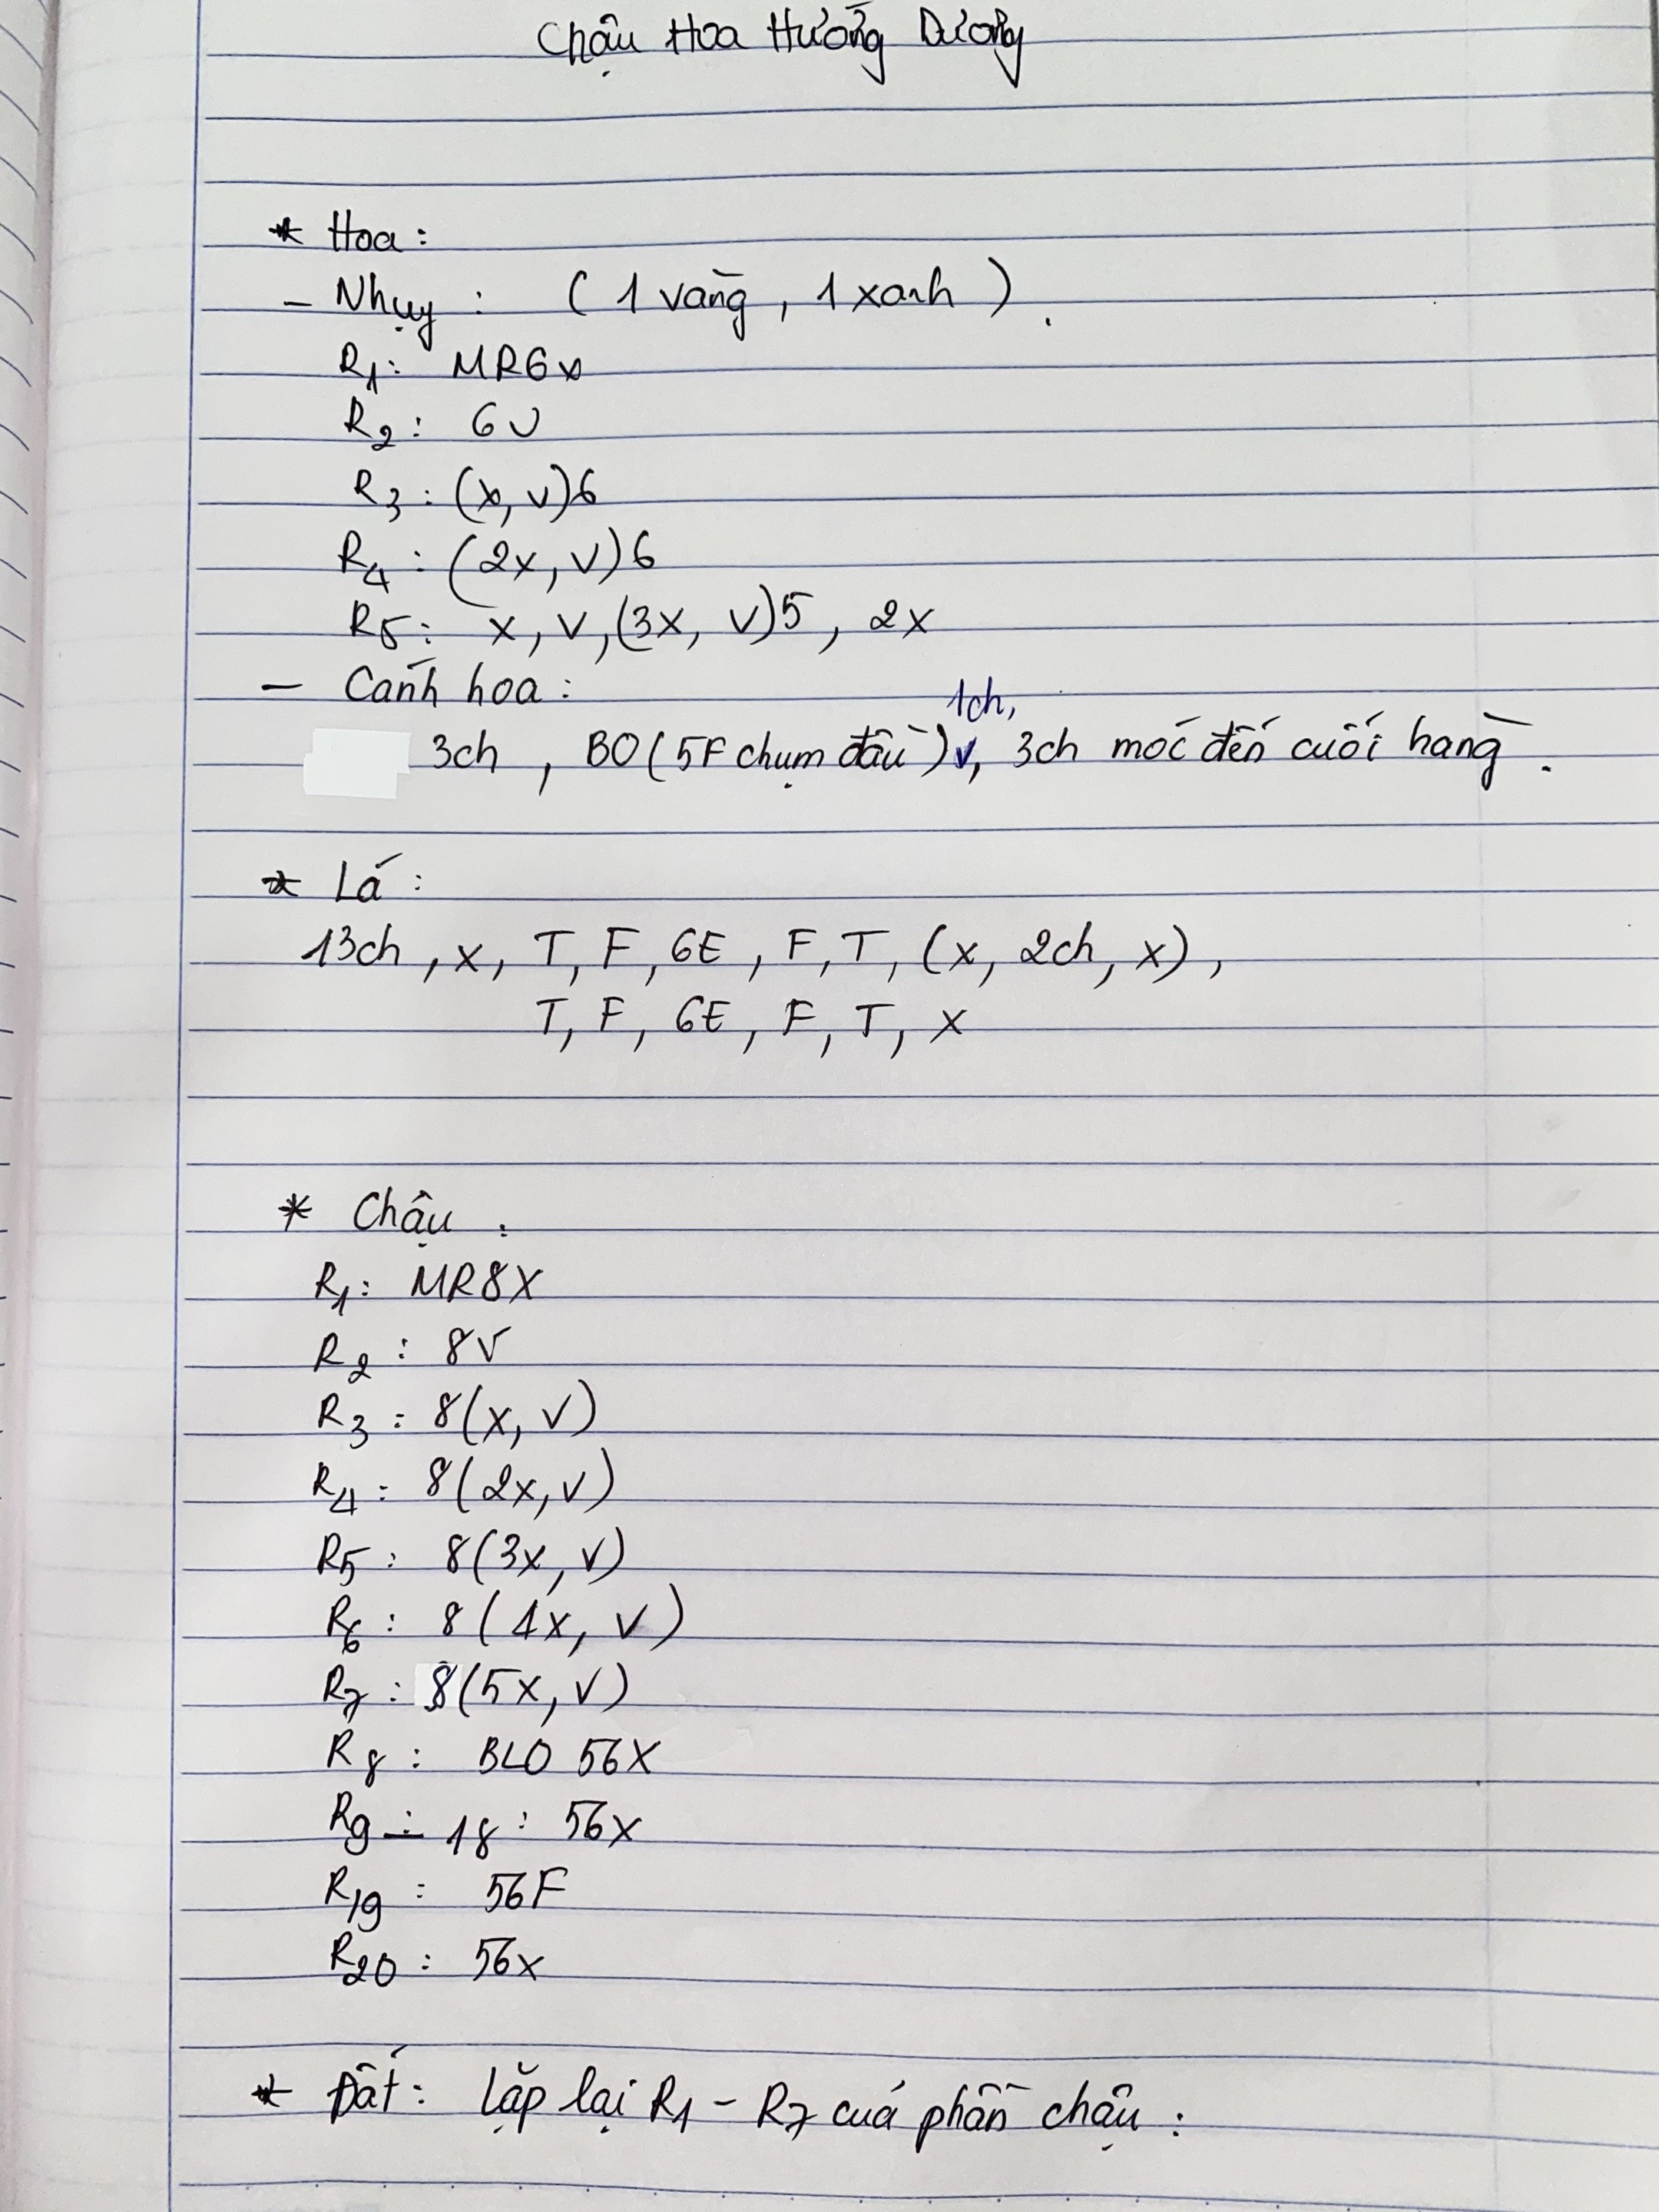 Chậu Hoa Hướng Dương
* Hoa:
- Nhụy: (1 vàng, 1 xanh).
R1: MR6x
R2: 6V
R3: (x, v)6
R4: (2x, v)6
R5: x, v, (3x, v)5, 2x
- Cánh hoa:
1ch,
3ch, BO (5F chụm đầu)v, 3ch móc đến cuối hàng.
* Lá:
13ch, x, T, F, 6E, F, T, (x, 2ch, x),
T, F, 6E, F, T, X
* Chậu:
R1: MR8X
R2: 8V
R3: 8(x, v)
R4: 8(2x, v)
R5: 8(3x, v)
R6: 8(4x, v)
R7: 8(5x, v)
R8: BLO 56X
R9 - 18: 56x
R19: 56F
R20: 56x
* Đất: Lặp lại R1 - R7 của phần chậu.